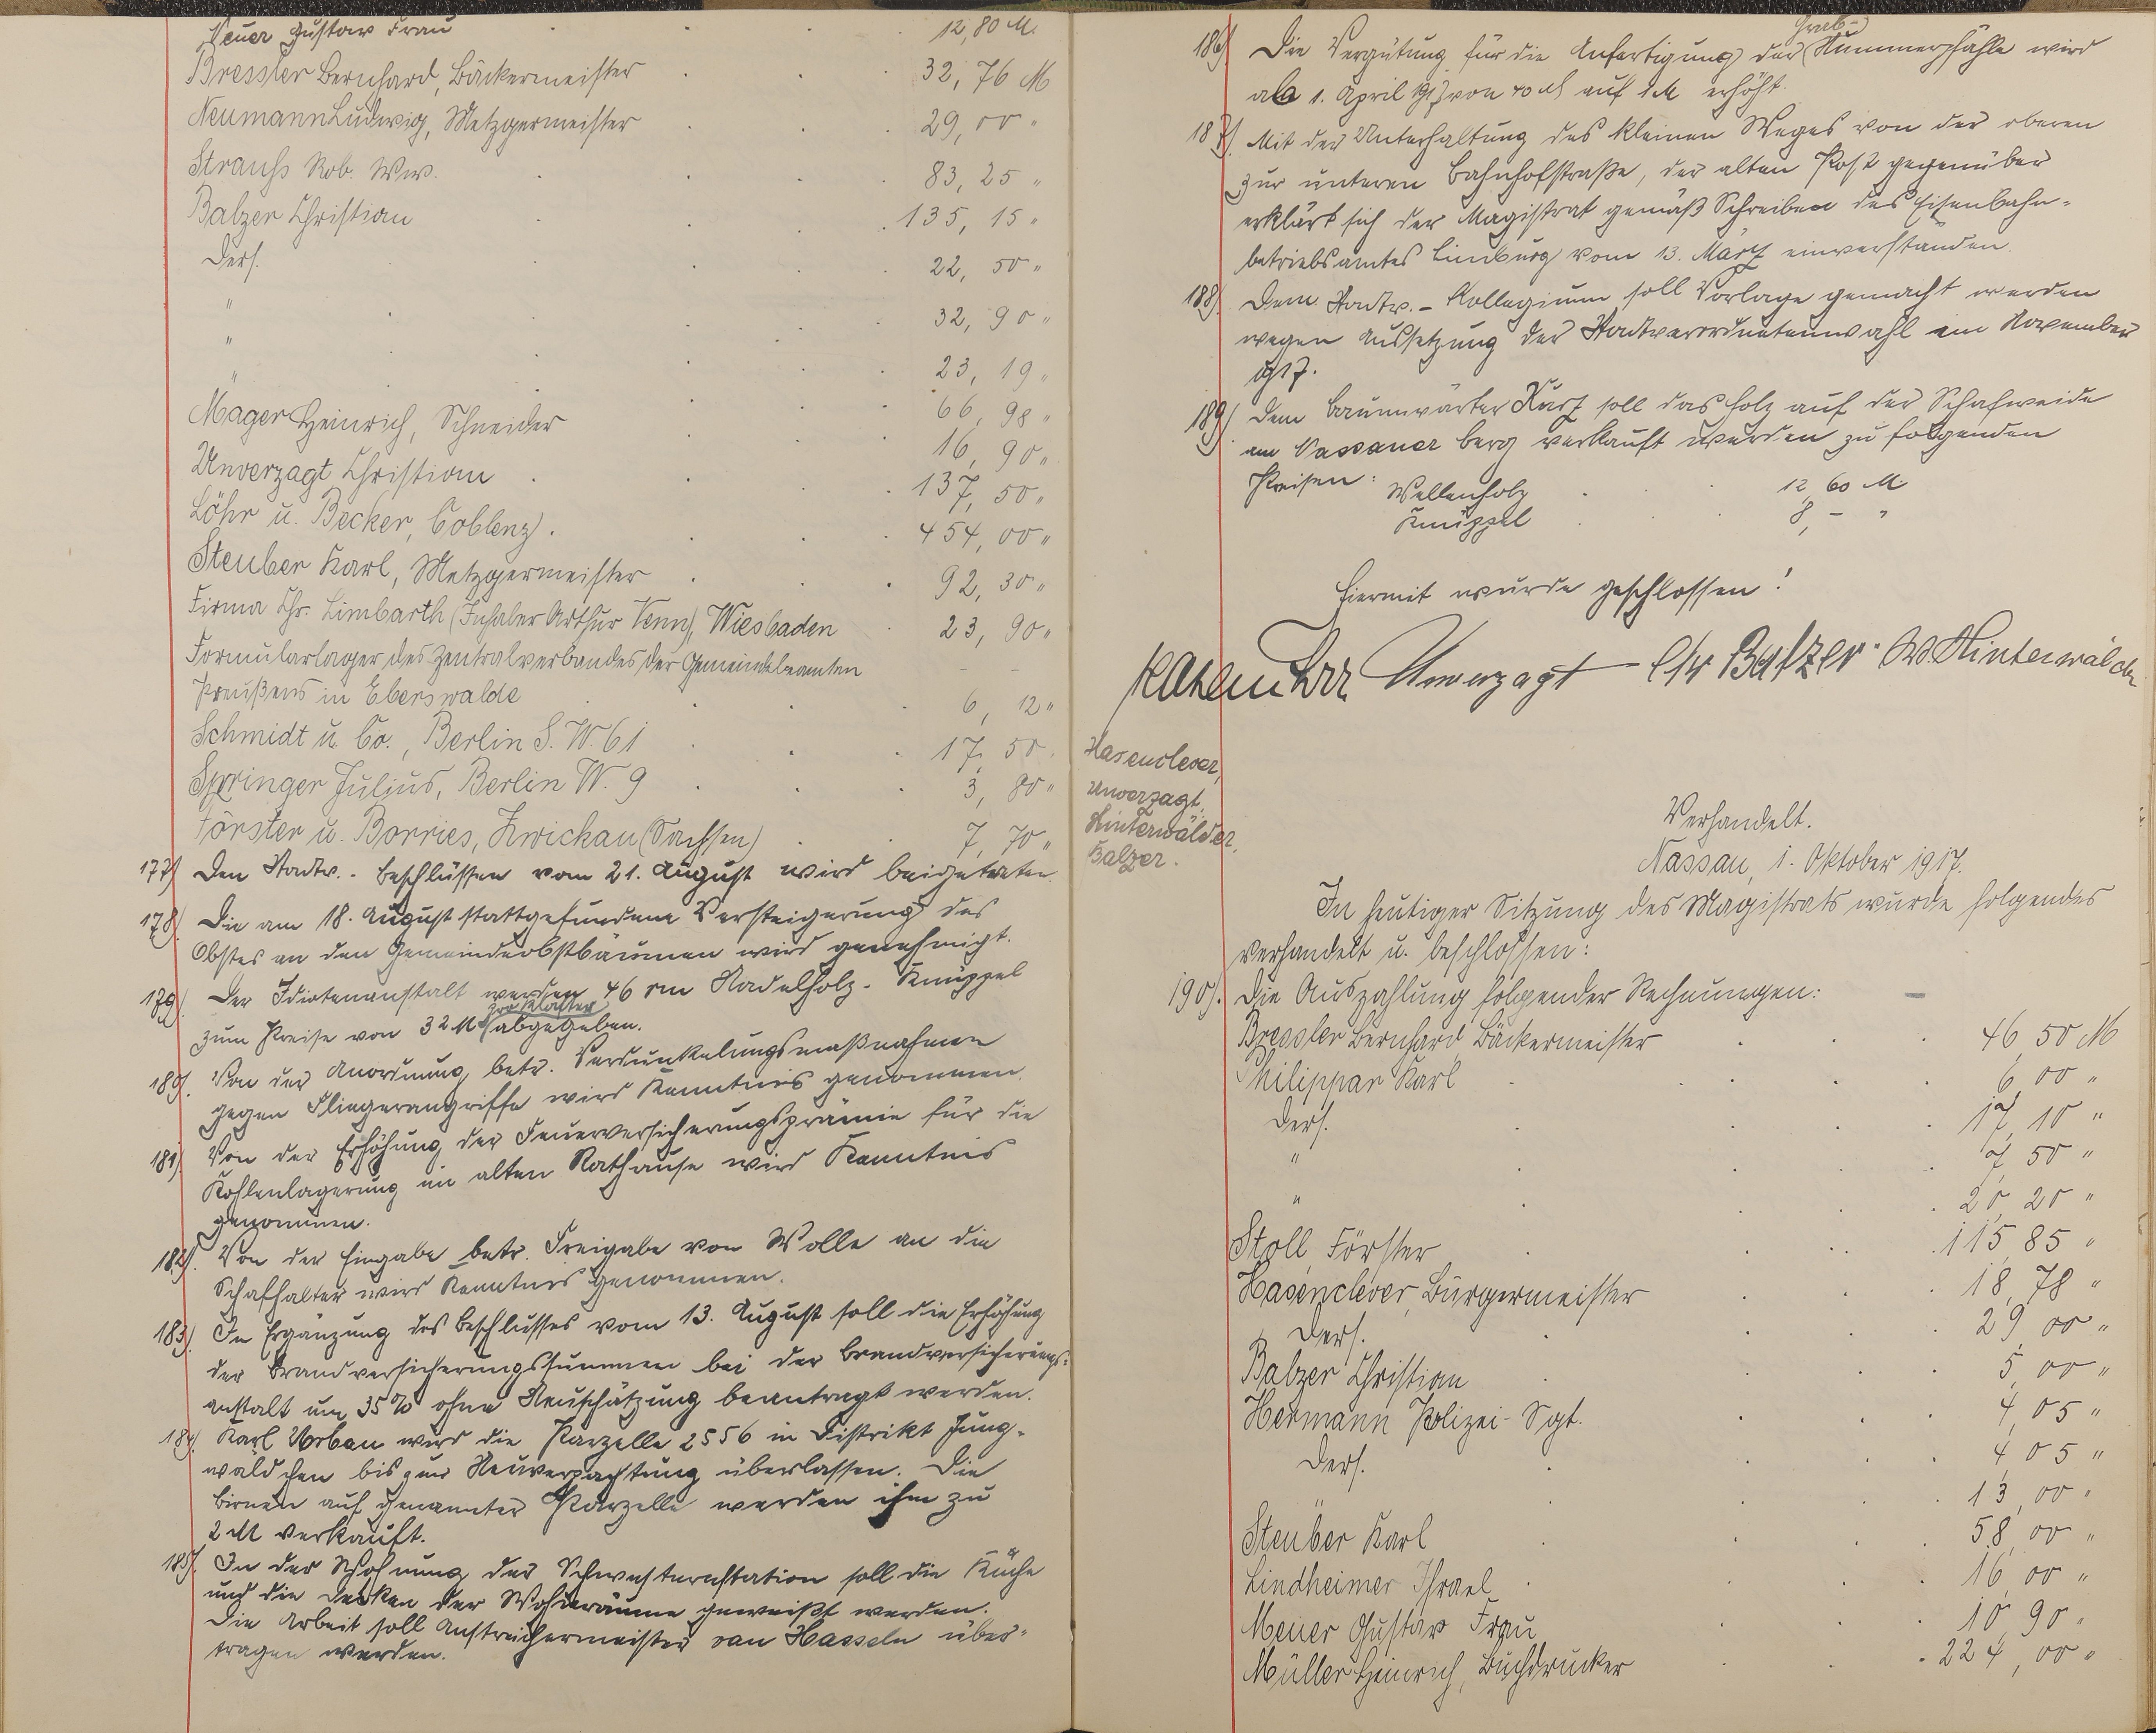 Meuer Gustav Frau . . . 12,80 M.
Bressler Bernhard, Bäckermeister . . . 32,76 M
Neumann Ludwig, Metzgermeister . . . 29,00 "
Strauß Rob. Ww. . . . 83,25 "
Balzer Christian . . . 135,15 "
Ders. . . . 22,50 "
" . . . 32,90 "
" . . . 23,19 "
" . . . 66,98 "
Mager Heinrich, Schneider . . . 16,90 "
Unverzagt Christian . . . 137,50 "
Löhr u. Becker, Coblenz . . . 454,00 "
Steuber Karl, Metzgermeister . . . 92,30 "
Firma Chr. Limbarth (Inhaber Arthur Venn), Wiesbaden . 23,90 "
Formularlager des Zentralverbandes der Gemeindebeamten
Preußens in Eberswalde . . . 6,12 "
Schmidt u. Co., Berlin S.W. 61 . . . 17,50 "
Springer Julius, Berlin W. 9 . . . 3,80 "
Förster u. Borries, Zwickau (Sachsen) . . 7,70 "
177) Den Stadtv.-Beschlüssen vom 21. August wird beigetreten.
178) Die am 18. August stattgefundene Versteigerung des
Obstes an den Gemeindeobstbäumen wird genehmigt.
179) Der Idiotenanstalt werden 46 rm Nadelholz-Knüppel
pro Klafter
zum Preise von 32 M abgegeben.
180). Von der Anordnung betr. Verdunkelungsmaßnahmen
gegen Fliegerangriffe wird Kenntnis genommen.
181) Von der Erhöhung der Feuerversicherungsprämie für die
Kohlenlagerung im alten Rathause wird Kenntnis
genommen.
182). Von der Eingabe betr. Freigabe von Wolle an die
Schafhalter wird Kenntnis genommen.
183) In Ergänzung des Beschlusses vom 13. August soll die Erhöhung
der Brandversicherungssummen bei der Brandversicherungs-
anstalt um 35% ohne Neuschätzung beantragt werden.
184). Karl Urban wird die Parzelle 2556 in Distrikt Jung-
wäldchen bis zur Neuverpachtung überlassen. Die
Birnen auf genannter Parzelle werden ihm zu
2 M verkauft.
185). In der Wohnung der Schwesternstation soll die Küche
und die Decken der Wohnräume geweißt werden.
Die Arbeit soll Anstreichermeister van Hasseln über-
tragen werden.
Grab-
186) Die Vergütung für die Anfertigung der Nummerpfähle wird
ab 1. April 1917 von 70 auf 1 M erhöht.
187) Mit der Unterhaltung des kleinen Weges von der oberen
zur unteren Bahnhofstraße, der alten Post gegenüber
erklärt sich der Magistrat gemäß Schreiben des Eisenbahn-
betriebsamtes Limburg vom 13. März einverstanden.
188) Dem Stadtv.-Kollegium soll Vorlage gemacht werden
wegen Aussetzung der Stadtverordnetenwahl im November
1917.
189) Dem Baumwärter Kurz soll das Holz auf der Schafweide
am Nassauer Berg verkauft werden zu folgenden
Preisen: Wellenholz . . 12,60 M.
Knüppel . . 8,- "
Hiermit wurde geschlossen!
Hasenclever Unverzagt Chr Balzer W. Hinterwälder
Hasenclever,
Unverzagt,
Hinterwälder,
Balzer.
Verhandelt.
Nassau, 1. Oktober 1917.
In heutiger Sitzung des Magistrats wurde folgendes
verhandelt u. beschlossen:
190). Die Auszahlung folgender Rechnungen:
Bressler Bernhard Bäckermeister . . 46,50 M
Philippar Karl . . . 6,00 "
Ders. . . . 17,10 "
" . . . 7,50 "
" . . . 20,20 "
Stoll, Förster . . . 115,85 "
Hasenclever, Bürgermeister . . 18,78 "
Ders. . . . 29,00 "
Balzer Christian . . . 5,00 "
Hermann Polizei-Sgt. . . . 4,05 "
Ders. . . . 4,05 "
. . . 13,00 "
Steuber Karl . . . 58,00 "
Lindheimer Israel . . . 16,00 "
Meuer Gustav Frau . . . 10,90 "
Müller Heinrich, Buchdrucker . . . 224,00 "